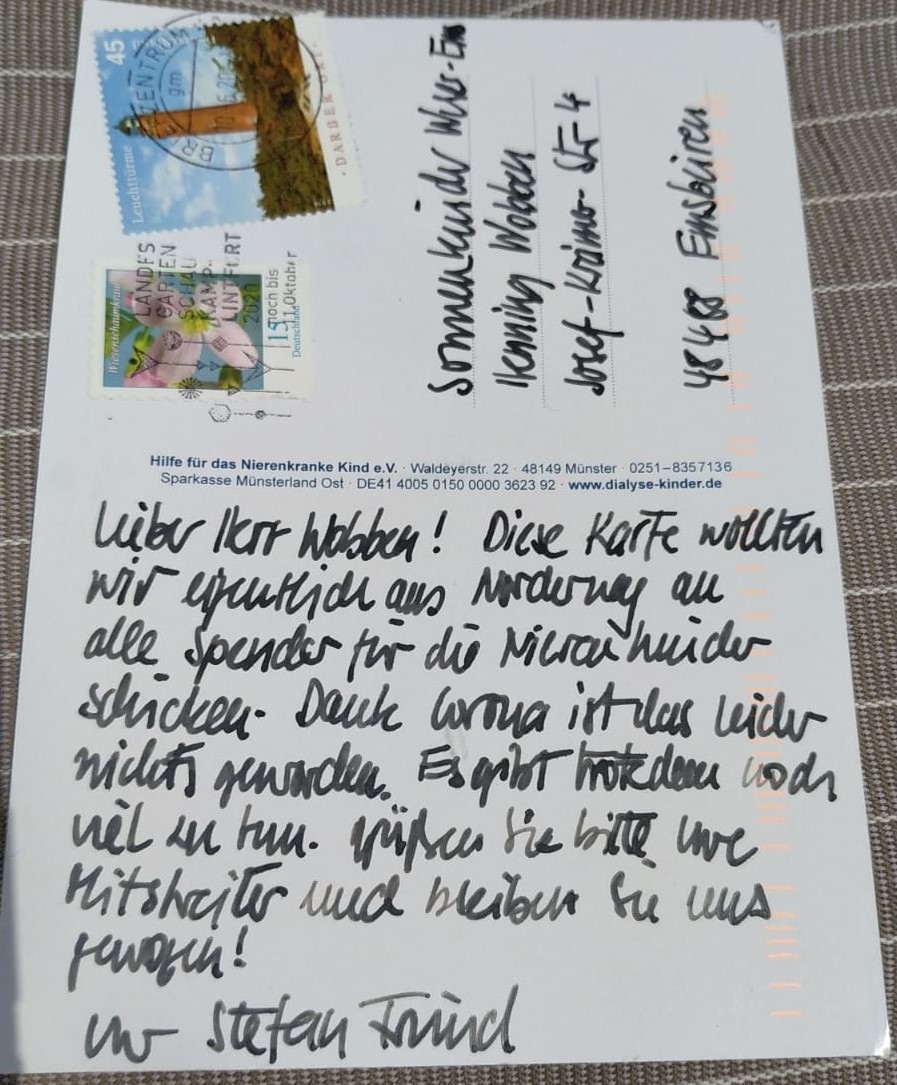 45
Leuchttürme
BRIEFZENTRUM
DARßER ORT
Wiesenschaumkraut
15
Deutschland
LANDES
GARTEN
SCHAU
KAMP-
LINTFORT
2020
noch bis
11. Oktober
Sonnenkinder Weser-Ems
Henning Wobben
Josef-Krämer-Str. 4
48488 Emsbüren
Hilfe für das Nierenkranke Kind e.V. · Waldeyerstr. 22 · 48149 Münster · 0251–8357136
Sparkasse Münsterland Ost · DE41 4005 0150 0000 3623 92 · www.dialyse-kinder.de
Lieber Herr Wobben! Diese Karte wollten
wir eigentlich aus Norderney an
alle Spender für die Nierenkinder
schicken. Dank Corona ist das leider
nichts geworden. Es gibt trotzdem noch
viel zu tun. Grüßen Sie bitte Ihre
Mitstreiter und bleiben Sie uns
gewogen!
Ihr Stefan Fründ